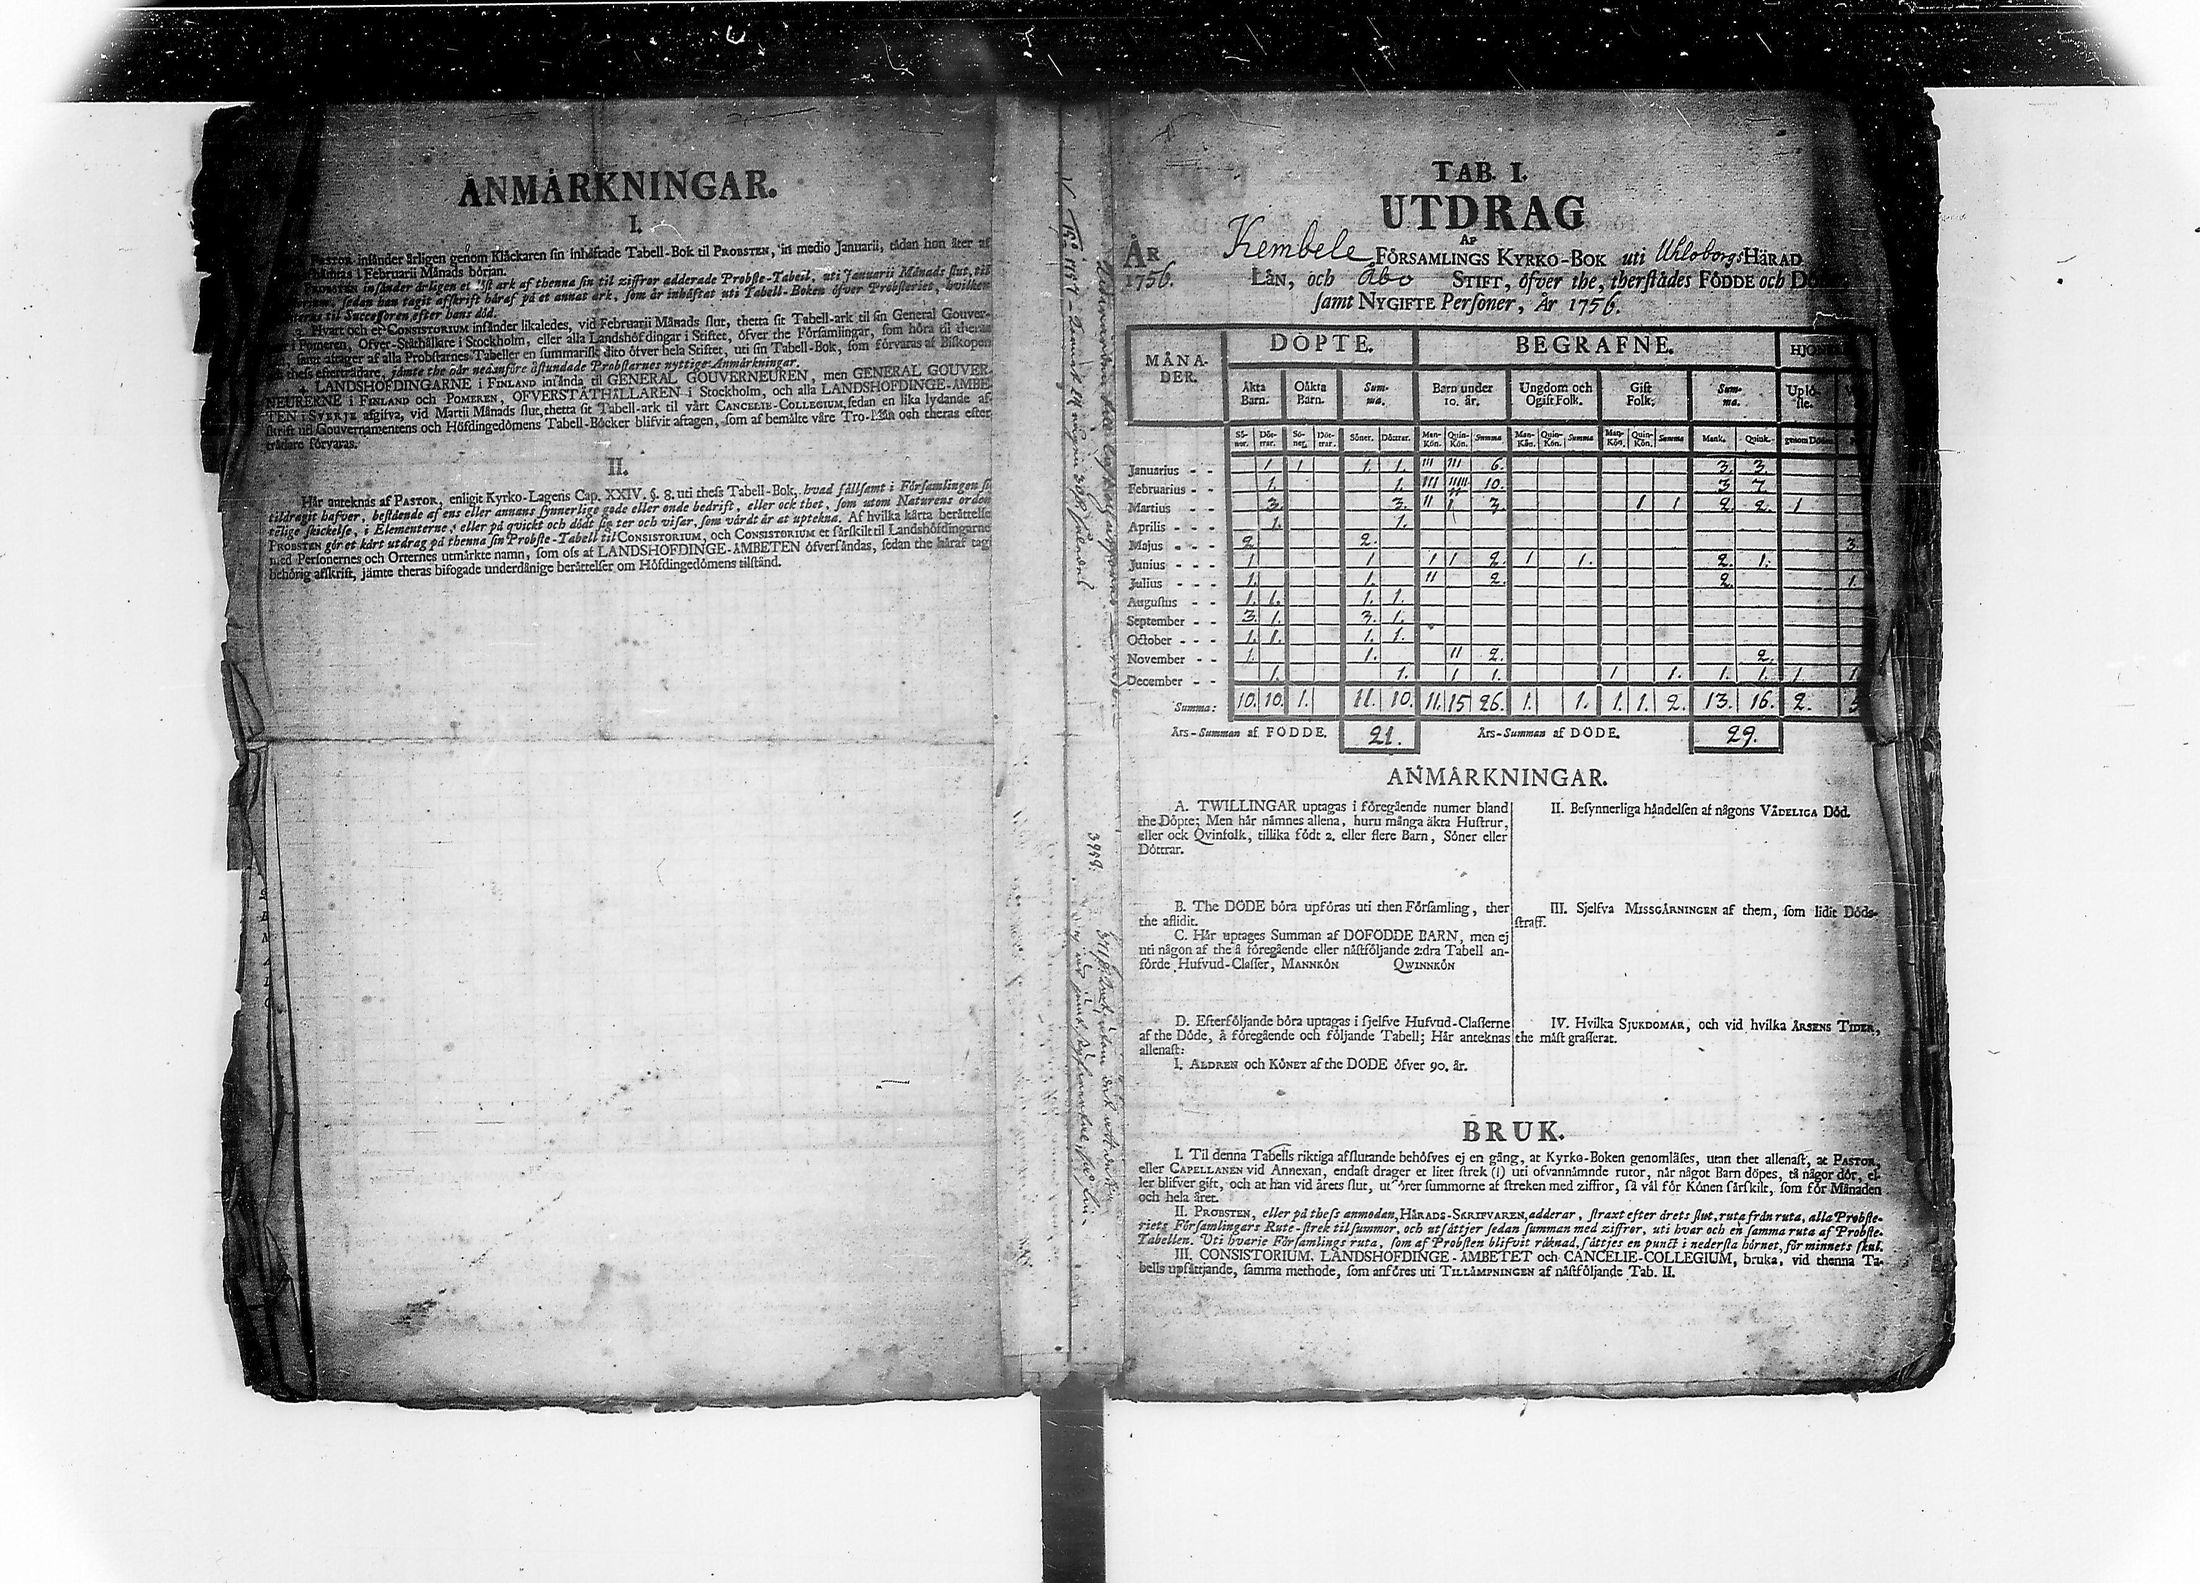 ANMÄRKNINGAR.
I.
PASTOR insänder årligen genom Klåckaren sin inhäftade Tabell-Bok til PROBSTEN, in medio Januarii, sådan hon åter af
hämtas i Februarii Månads början.
PROBSTEN insänder årligen et löst ark af thenna sin til ziffror adderade Probste-Tabell, uti Januarii Månads slut, til
sedan han tagit afskrift häraf på et annat ark, som är inhäftat uti Tabell-Boken öfver Probsteriet, hvilken
til Successoren efter hans död.
3. Hvart och et CONSISTORIUM insänder likaledes, vid Februarii Månads slut, thetta sit Tabell-ark til sin General Gouver-
i Pomeren, Öfver-Ståthållare i Stockholm, eller alla Landshöfdingar i Stiftet, öfver the Församlingar, som höra til theras
samt aftager af alla Probstarnes Tabeller en summarisk dito öfver hela Stiftet, uti sin Tabell-Bok, som förvaras af Biskopen
thess efterträdare, jämte the där nedanföre åstundade Probstarnes nyttige Anmärkningar.
4. LANDSHÖFDINGARNE i FINLAND insända til GENERAL GOUVERNEUREN, men GENERAL GOUVER-
NEURERNE i FINLAND och POMEREN, ÖFVERSTÅTHÅLLAREN i Stockholm, och alla LANDSHÖFDINGE-ÄMBE-
TEN i SVERJE afgifva, vid Martii Månads slut, thetta sit Tabell-ark til vårt CANCELIE-COLLEGIUM, sedan en lika lydande af-
skrift uti Gouvernamentens och Höfdingedömens Tabell-Böcker blifvit aftagen, som af bemälte våre Tro-Män och theras efter-
trädare förvaras.
II.
Här anteknas af PASTOR, enligit Kyrko-Lagens Cap. XXIV. §. 8. uti thess Tabell-Bok, hvad sällsamt i Församlingen
tildragit hafver, bestående af ens eller annans synnerlige gode eller onde bedrift, eller ock thet, som utom Naturens orden
telige skickelse, i Elementerne, eller på qvickt och dödt sig ter och visar, som värdt är at uptekna. Af hvilka kårta berättelse
PROBSTEN gör et kårt utdrag på thenna sin Probste-Tabell til CONSISTORIUM, och CONSISTORIUM et särskilt til Landshöfdingarne
med Personernes och Orternes utmärkte namn, som oss af LANDSHÖFDINGE-ÄMBETEN öfversändas, sedan the häraf tagit
behörig afskrift, jämte theras bifogade underdånige berättelser om Höfdingedömens tilstånd.
3959:
TAB. I.
UTDRAG
AF
ÅR 1756. Kembele FÖRSAMLINGS KYRKO-BOK uti Uhloborgs HÄRAD
LÄN, och Åbo STIFT, öfver the, therstädes FÖDDE och
samt NYGIFTE Personer, År 1756.
MÅNA-DER. DÖPTE. BEGRAFNE. HJONE
Äkta Barn. Oäkta Barn. Sum-ma. Barn under 10. år. Ungdom och Ogift Folk. Gift Folk. Sum-ma. Uplö-ste.
Sö-ner. Döt-rar. Sö-ner. Döt-rar. Söner. Döttrar. Man-Kön. Quin-Kön. Summa Man-Kön. Quin-Kön. Summa Man-Kön. Quin-Kön. Summa Mank. Quink. genom Döden
Januarius - - 1 1 1. 1. III III 6. 3. 3.
Februarius - - 1. 1. III IIIIIII 10. 3 7.
Martius - - 3. 3. II I 3. 1 1 2. 2. 1
Aprilis - - - 1. 1.
Majus - - - 2 2. 3
Junius - - - 1 1 1 1 2. 1 1. 2. 1.
Julius - - - 1. 1. II 2. 2. 1.
Augustus - - 1. 1. 1. 1.
September - - 3. 1. 3. 1.
October - - - 1. 1. 1. 1.
November - - 1. 1. II 2. 2.
December - - 1. 1. 1 1. 1 1. 1. 1. 1 1
Summa: 10. 10. 1. 11. 10. 11. 15 26. 1. 1. 1. 1. 2. 13. 16. 2. 5
Års-Summan af FÖDDE. 21. Års-Summan af DÖDE. 29.
ANMÄRKNINGAR.
A. TWILLINGAR uptagas i föregående numer bland
the Döpte; Men här nämnes allena, huru många äkta Hustrur,
eller ock Qvinfolk, tillika födt 2. eller flere Barn, Söner eller
Döttrar.
B. The DÖDE böra upföras uti then Församling, ther
the aflidit.
C. Här uptages Summan af DÖFÖDDE BARN, men ej
uti någon af the å föregående eller nästföljande 2:dra Tabell an-
förde Hufvud-Classer, MANNKÖN QWINNKÖN
D. Efterföljande böra uptagas i sjelfve Hufvud-Classerne
af the Döde, å föregående och följande Tabell; Här anteknas
allenast:
I. ÅLDREN och KÖNET af the DÖDE öfver 90. år.
II. Besynnerliga händelsen af någons VÅDELIGA Död.
III. Sjelfva MISSGÄRNINGEN af them, som lidit Döds-
straff.
IV. Hvilka SJUKDOMAR, och vid hvilka ÅRSENS TIDER,
the mäst grasserat.
BRUK.
I. Til denna Tabells riktiga afslutande behöfves ej en gång, at Kyrko-Boken genomläses, utan thet allenast, at PASTOR,
eller CAPELLANEN vid Annexan, endast drager et litet strek (I) uti ofvannämnde rutor, när något Barn döpes, tå någor dör, el-
ler blifver gift, och at han vid årets slut, utförer summorne af streken med ziffror, så väl för Könen särskilt, som för Månaden
och hela året.
II. PROBSTEN, eller på thess anmodan, HÄRADS-SKRIFVAREN, adderar, straxt efter årets slut, ruta från ruta, alla Probste-
riets Församlingars Rute-strek til summor, och utsättjer sedan summan med ziffror, uti hvar och en samma ruta af Probste-
Tabellen. Uti hvarje Församlings ruta, som af Probsten blifvit räknad, sättjes en punct i nedersta hörnet, för minnets skul.
III. CONSISTORIUM, LANDSHÖFDINGE-ÄMBETET och CANCELIE-COLLEGIUM, bruka, vid thenna Ta-
bells upsättjande, samma methode, som anföres uti TILLÄMPNINGEN af nästföljande Tab. II.